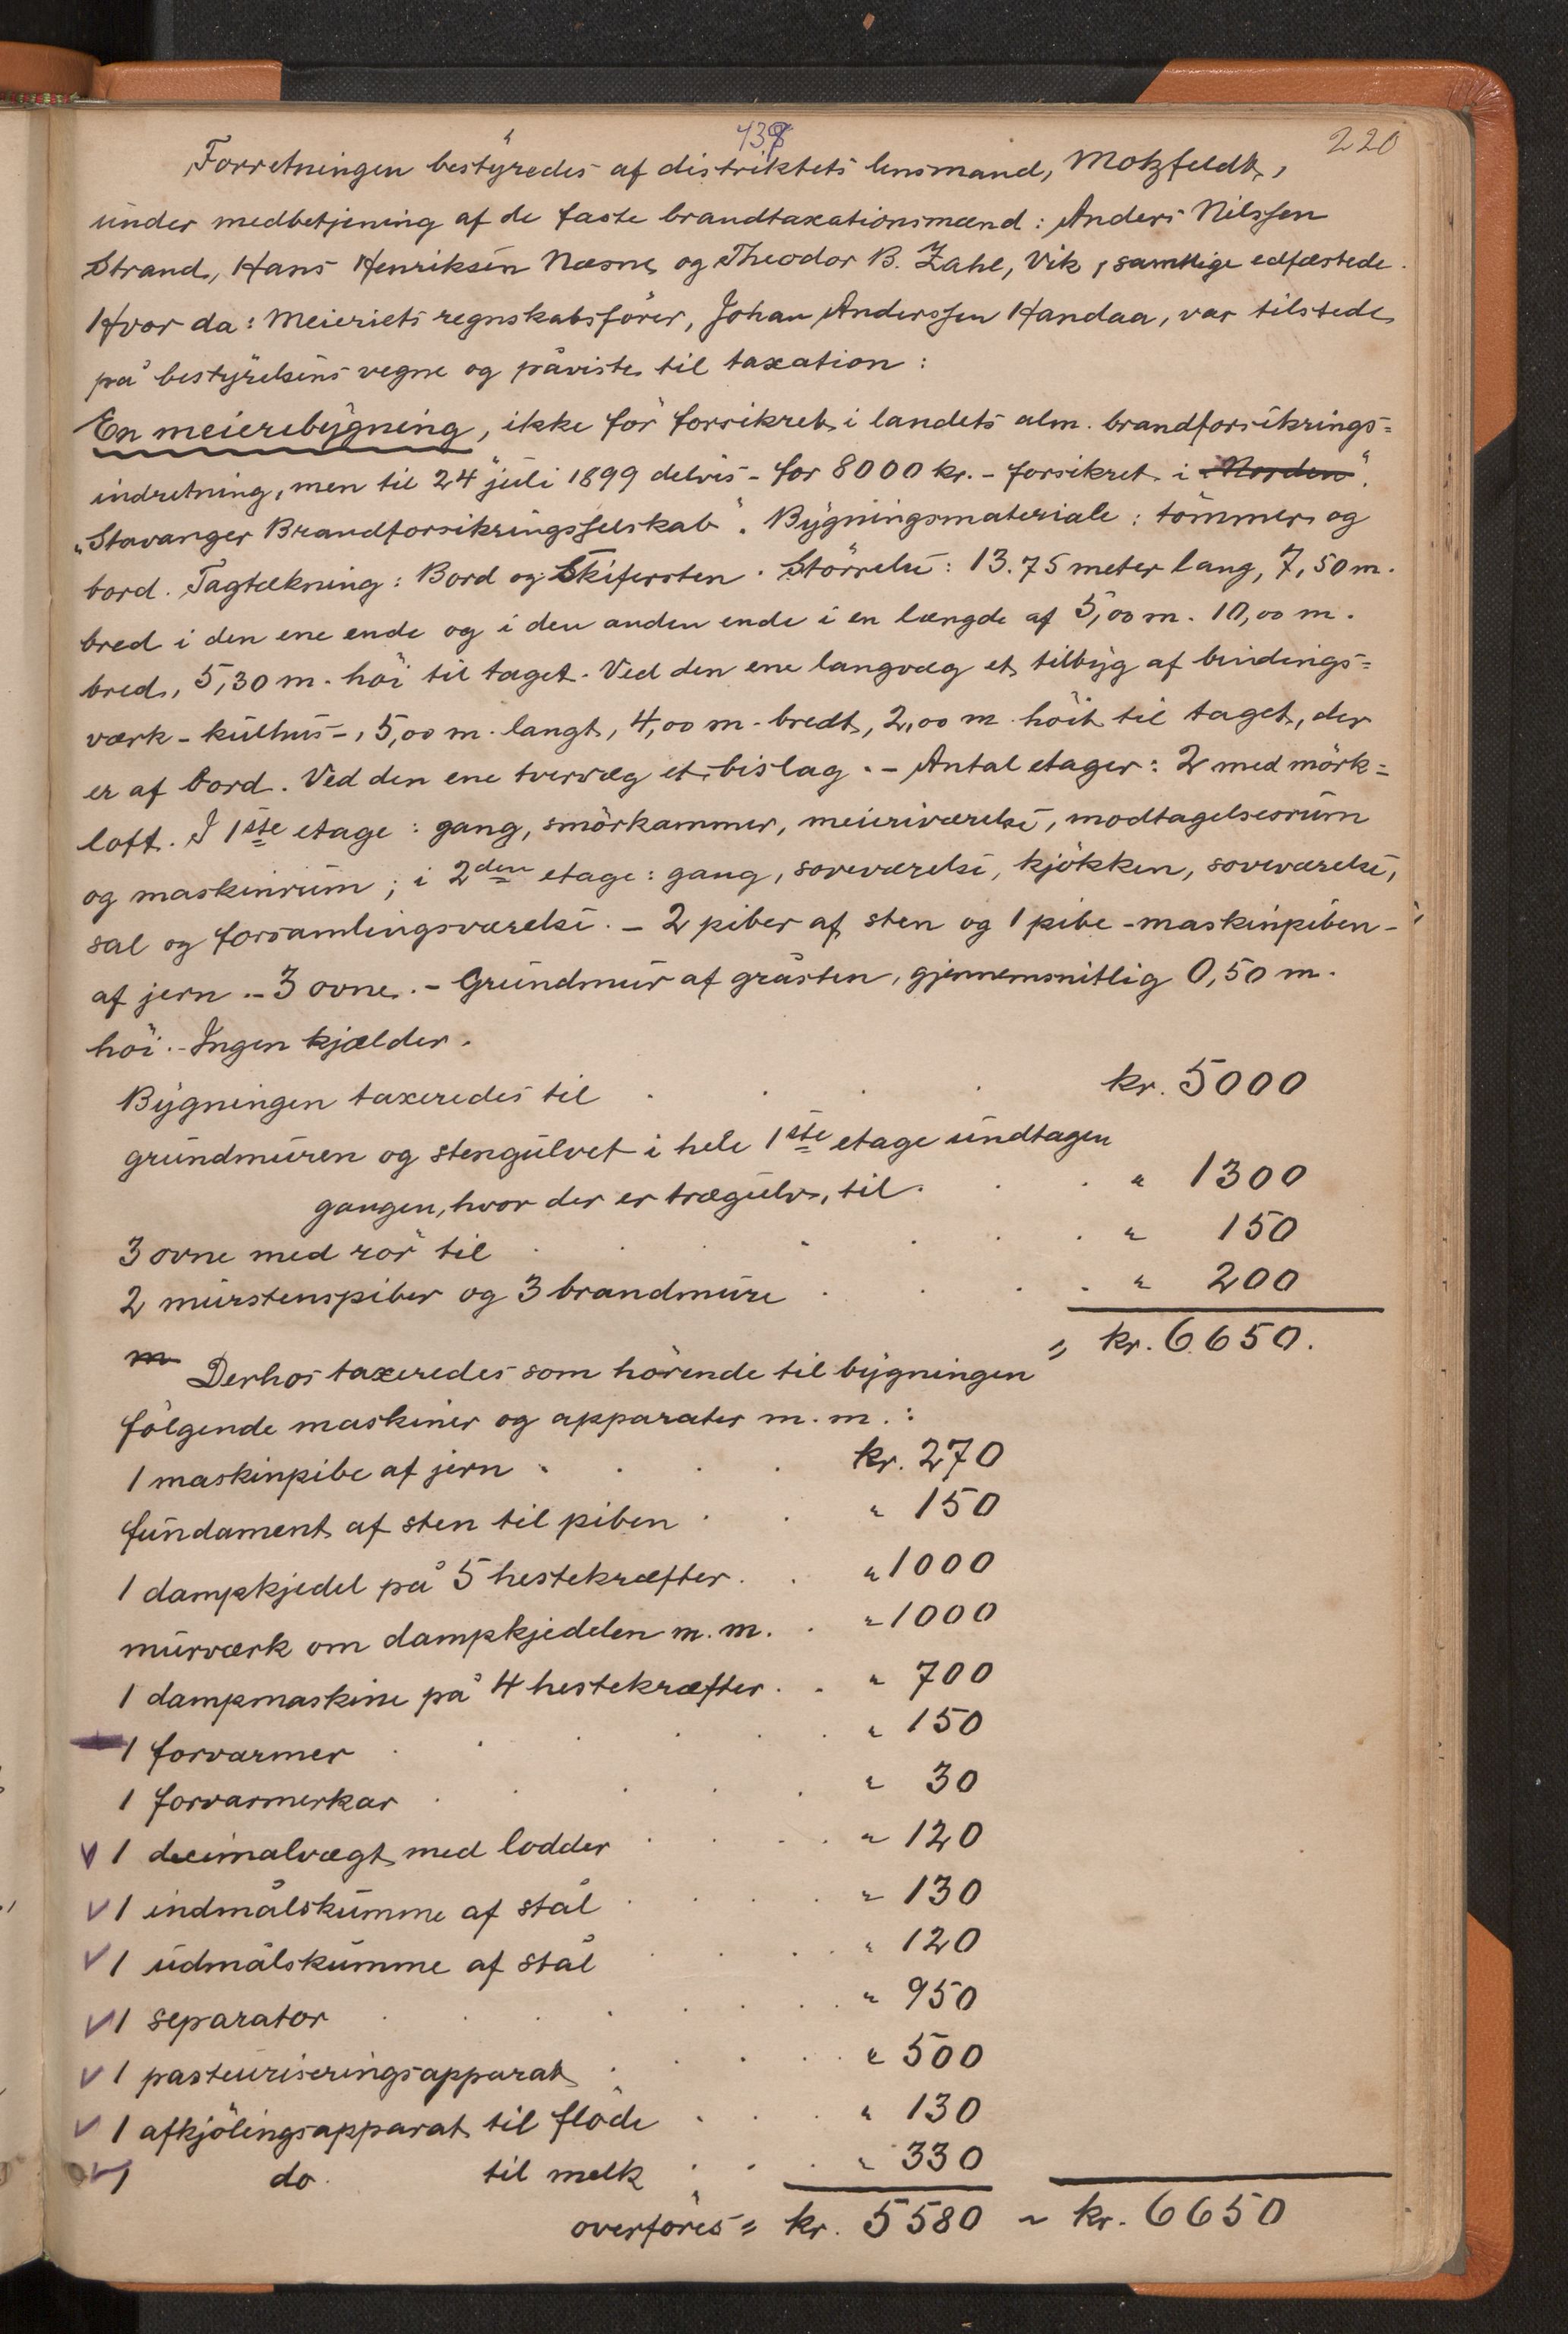 439
220
Forretningen bestyredes af distriktets lensmand, Motzfeldt,
under medbetjening af de faste brandtaxationsmænd: Anders Nilssen
Strand, Hans Henriksen Næsne og Theodor B. Zahl, Vik, samtlige edfæstede.
Hvor da: Meieriets regnskabsfører, Johan Anderssen Handaa, var tilstede
på bestyrelsens vegne og påviste til taxation:
En meieribygning, ikke før forsikret i landets alm. brandforsikrings=
indretning, men til 24 juli 1899 delvis - for 8000 kr. - forsikret i „Norden“.
„Stavanger Brandforsikringsselskab“. Bygningsmateriale: tømmer og
bord. Tagtækning: Bord og Skifersten. Størrelse: 13.75 meter lang, 7,50 m.
bred i den ene ende og i den anden ende i en længde af 5,00 m. 10,00 m.
bred, 5,30 m. høi til taget. Ved den ene langvæg et tilbyg af bindings=
værk - kulhus -, 5,00 m. langt, 4,00 m. bredt, 2,00 m. høit til taget, der
er af bord. Ved den ene tvervæg et bislag. - Antal etager: 2 med mørk=
loft. I 1ste etage: gang, smørkammer, meieriværelse, modtagelsesrum
og maskinrum; i 2den etage: gang, soveværelse, kjøkken, soveværelse,
sal og forsamlingsværelse. - 2 piber af sten og 1 pibe - maskinpiben -
af jern. - 3 ovne. - Grundmur af gråsten, gjennemsnitlig 0,50 m.
høi. - Ingen kjælder.
Bygningen taxeredes til . . . . kr. 5000
grundmuren og stengulvet i hele 1ste etage undtagen
gangen, hvor der er trægulv, til . . . " 1300
3 ovne med rør til . . . . . . . " 150
2 murstenspiber og 3 brandmure . . . . " 200
= kr. 6650.
m Derhos taxeredes som hørende til bygningen
følgende maskiner og apparater m. m.:
1 maskinpibe af jern . . . . kr. 270
fundament af sten til piben . . " 150
1 dampkjedel på 5 hestekræfter . . " 1000
murværk om dampkjedelen m. m. . " 1000
1 dampmaskine på 4 hestekræfter . . " 700
1 forvarmer . . . . . . " 150
1 forvarmerkar . . . . . " 30
V 1 decimalvægt med lodder . . . " 120
V 1 indmålskumme af stål . . . . " 130
V 1 udmålskumme af stål . . . . " 120
V 1 separator . . . . . . " 950
V 1 pasteuriseringsapparat . . . . " 500
V 1 afkjølingsapparat til fløde . . . " 130
V 1 do. til melk . . . " 330
overføres = kr. 5580 ~ kr. 6650